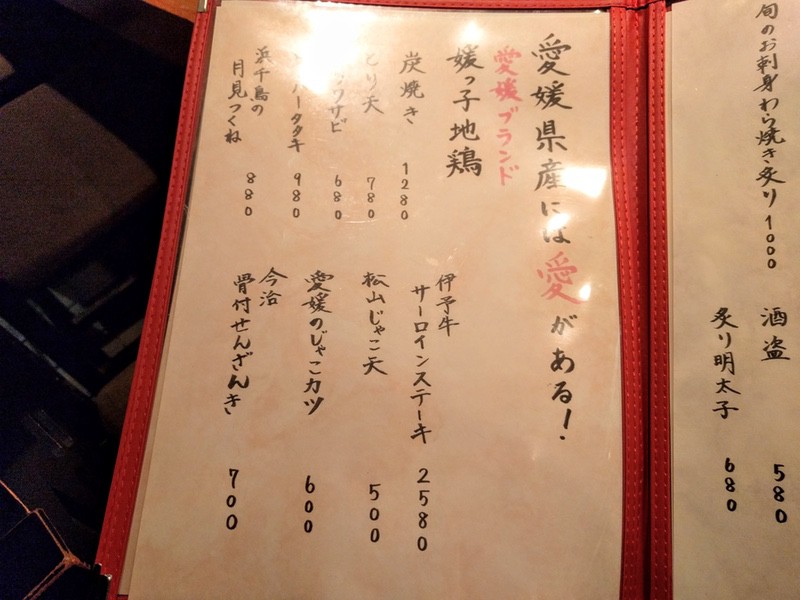 旬のお刺身わら焼き炙り 1000
酒盗 580
炙り明太子 680
愛媛県産には愛がある!
愛媛ブランド
媛っ子地鶏
炭焼き 1280
とり天 780
ワサビ 680
タタキ 980
浜千鳥の
月見つくね 880
伊予牛
サーロインステーキ 2580
松山じゃこ天 500
愛媛のじゃこカツ 600
今治
骨付せんざんき 700